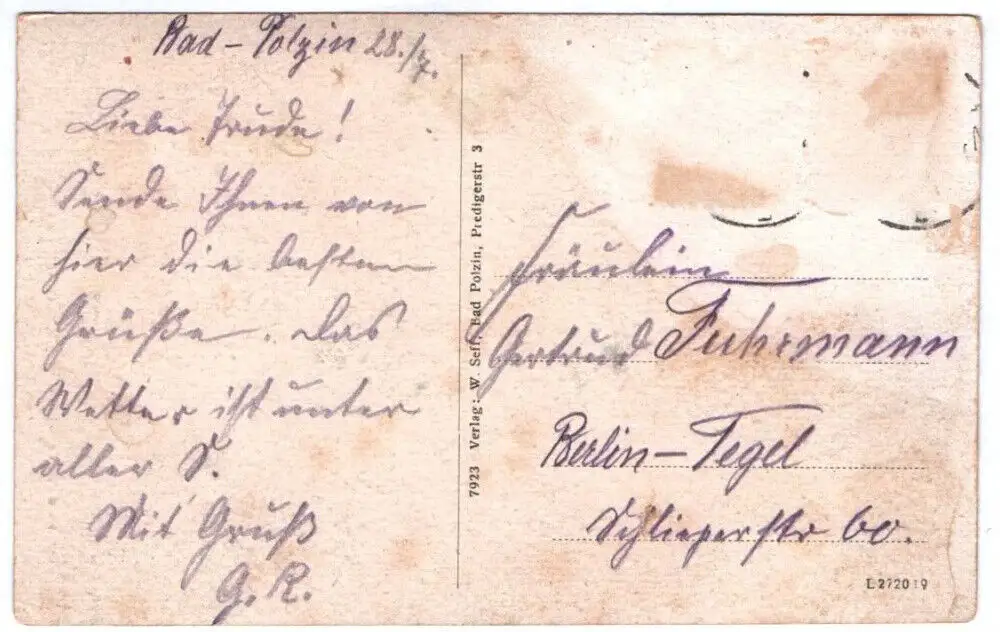 Bad-Polzin 28./7.
Liebe Trude!
Sende Ihnen von
hier die besten
Grüße. Das
Wetter ist unter
aller S.
Mit Gruß
G. R.
7923 Verlag: W. Seff, Bad Polzin, Predigerstr 3
Fräulein
Gertrud Fuhrmann
Berlin-Tegel
Schlieperstr 60.
L 2720 19